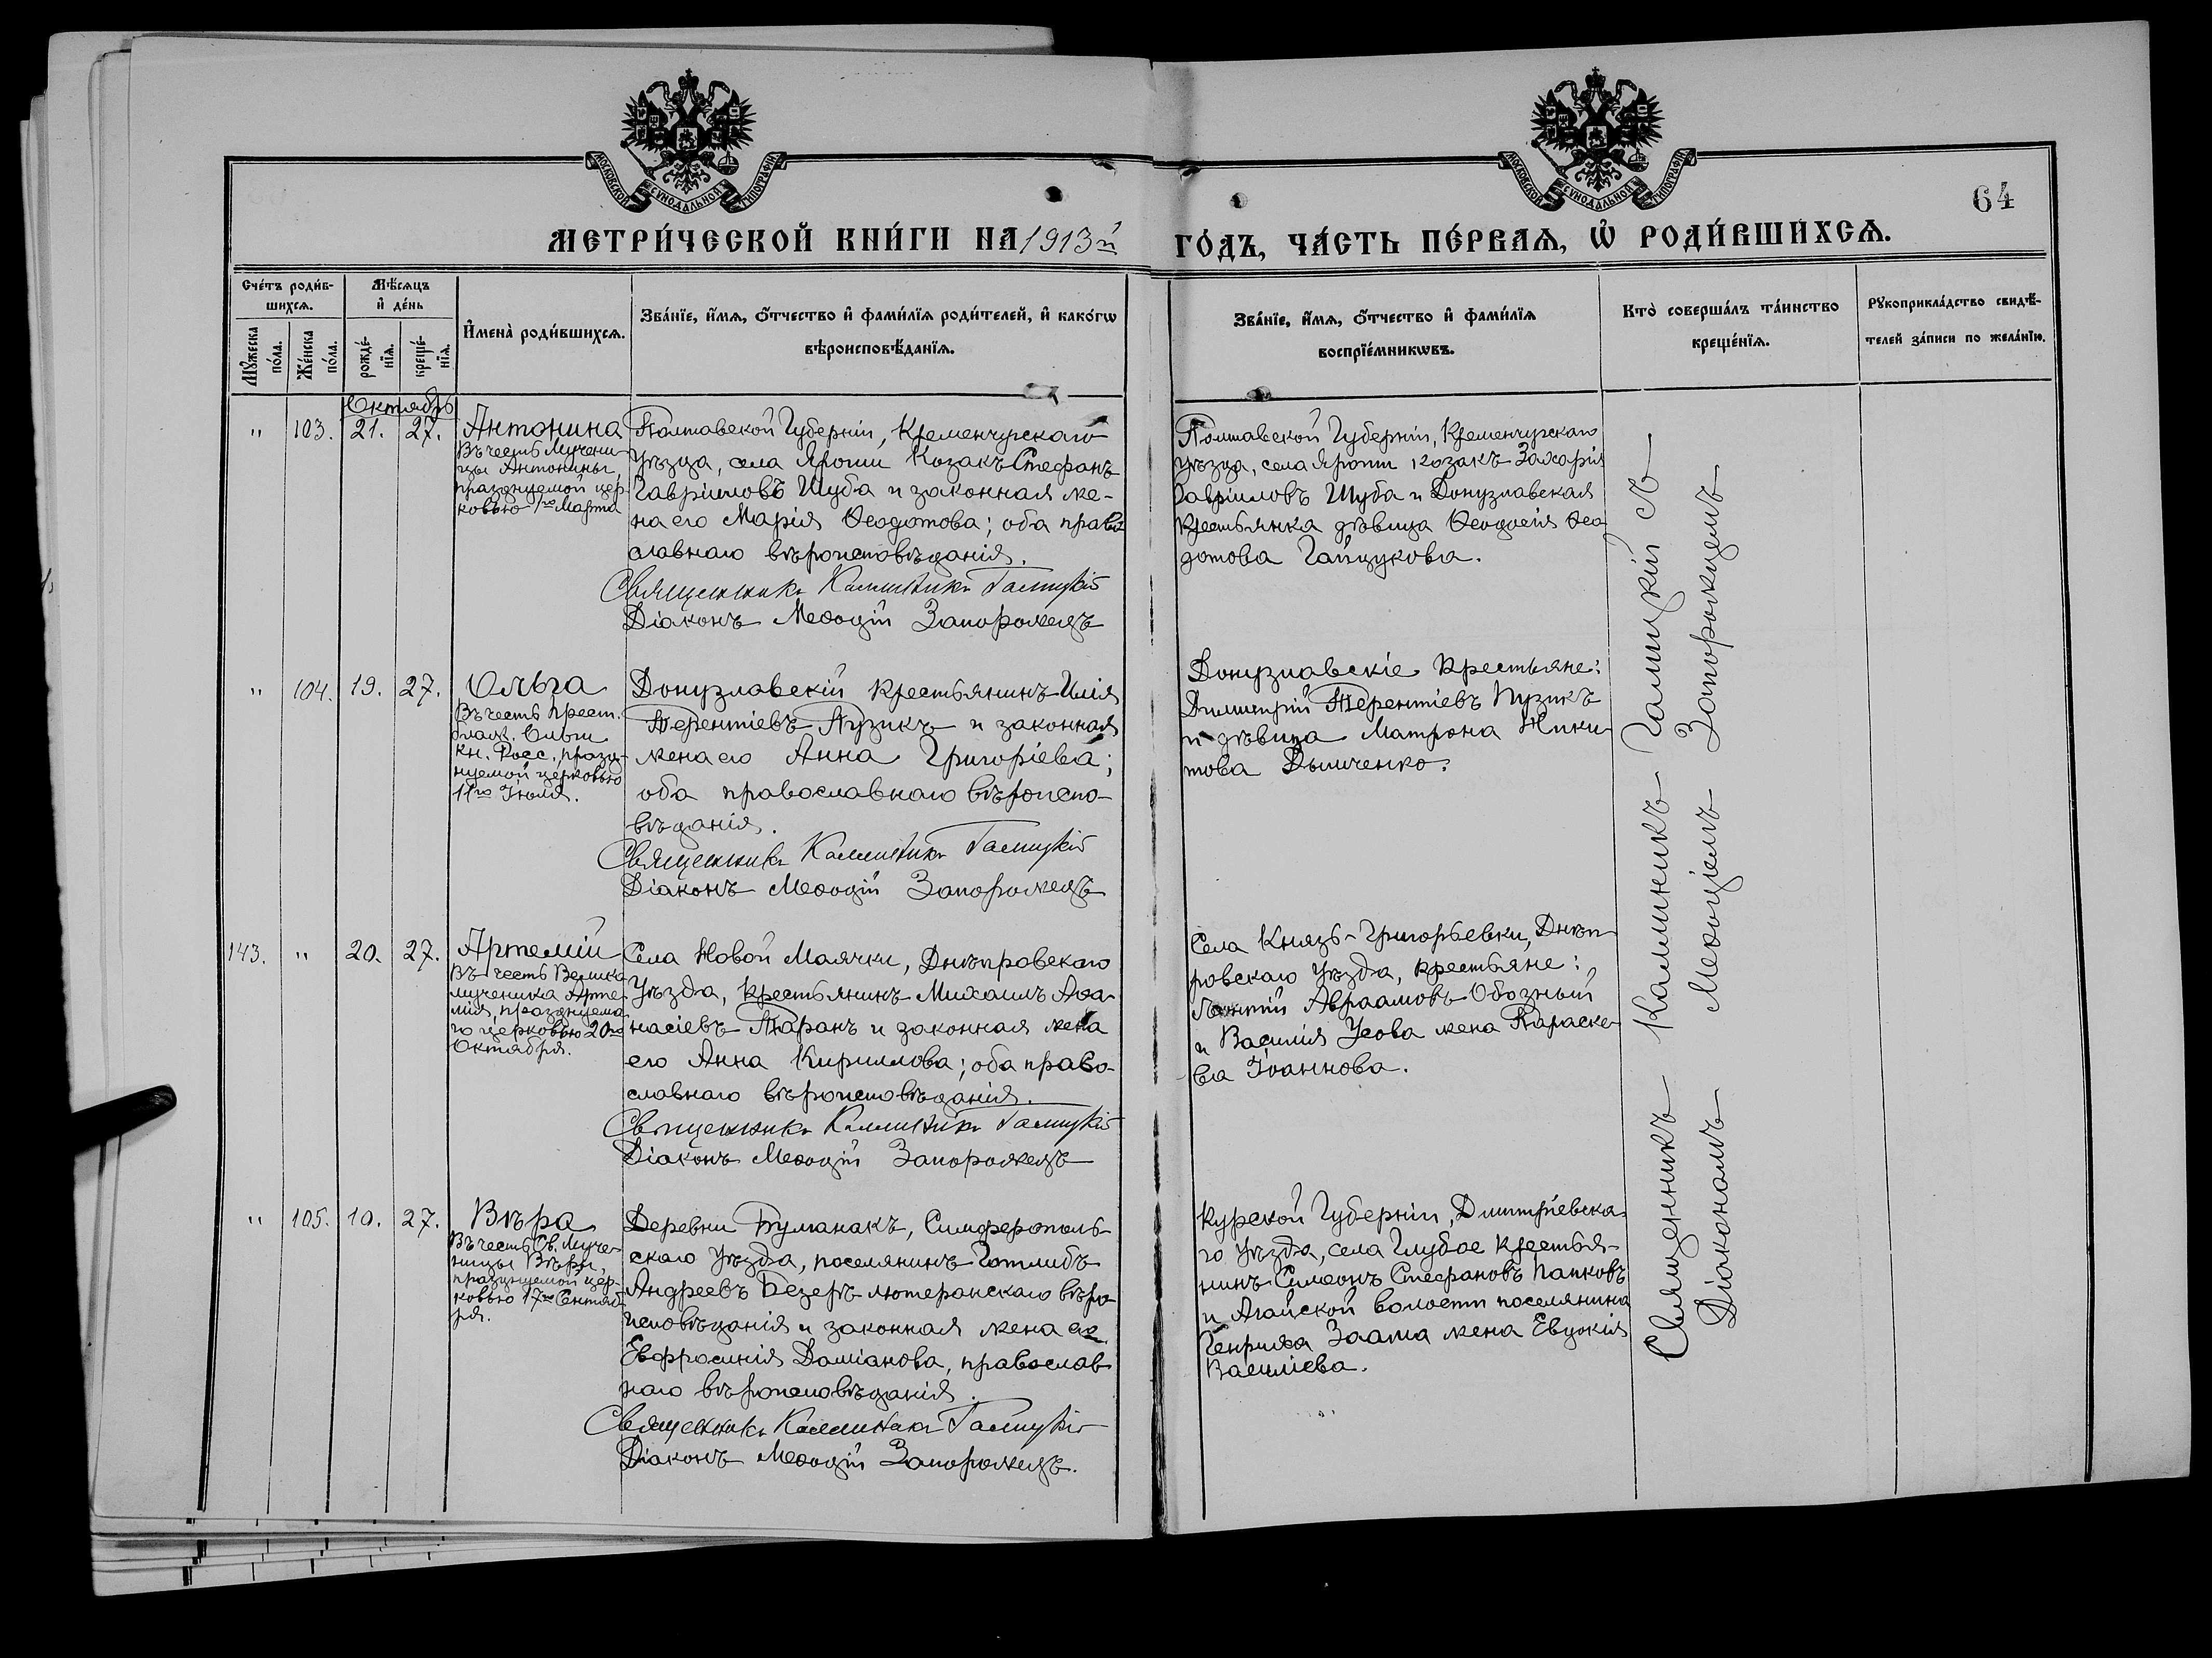 МОСКОВСКОЙ СУНОДАЛЬНОЙ ТИПОГРАФІИ
МОСКОВСКОЙ СУНОДАЛЬНОЙ ТИПОГРАФІИ
64
МЕТРИ́ЧЕСКОЙ КНИ́ГИ НА 1913й ГО́ДЪ, ЧА́СТЬ ПЕ́РВАѦ, Ѡ҆ РОДИ́ВШИХСѦ.
Сче́тъ роди́в-
шихсѧ.
Мꙋ́жеска по́ла.
Же́нска по́ла.
Мѣ́сѧцъ
и҆ де́нь
рожде́-
нїѧ.
креще́-
нїѧ.
И҆мена̀ роди́вшихсѧ.
Зва́нїе, и҆́мѧ, ѻ҆́тчество и҆ фами́лїѧ роди́телей, и҆ како́гѡ
вѣроисповѣ́данїѧ.
Зва́нїе, и҆́мѧ, ѻ҆́тчество и҆ фами́лїѧ
воспрїе́мникѡвъ.
Кто̀ соверша́лъ та́инство
креще́нїѧ.
Рꙋкоприкла́дство свидѣ́-
телей за́писи по жела́нїю.
Октябрь
" 103. 21. 27.
Антонина
Въ честь Мучени-
цы Антонины,
празднуемой цер-
ковью 1го Марта
Полтавской Губерніи, Кременчугскаго
уѣзда, села Ярошни Козакъ Стефанъ
Гавріиловъ Шуба и законная же-
на его Марія Ѳеодотова; оба право
славнаго вѣроисповѣданія.
Священникъ Каллиникъ Галицкій
Діаконъ Меѳодій Запорожецъ
Полтавской Губерніи, Кременчугскаго
уѣзда, села Ярошни козакъ Захарія
Гавріиловъ Шуба и Донузлавская
крестьянка дѣвица Ѳеодосія Ѳео
дотова Гайдукова.
" 104. 19. 27.
Ольга
Въ честь
Ольги
кн. Росс., празд-
нуемой церковью
11го Іюля.
Донузлавскій крестьянинъ Илія
Терентіевъ Пузикъ и законная
жена его Анна Григоріева;
оба православнаго вѣроиспо-
вѣданія.
Священникъ Каллиникъ Галицкій
Діаконъ Меѳодій Запорожецъ
Донузлавскіе крестьяне:
Димитрій Терентіевъ Пузикъ
и дѣвица Матрона Ники-
това
143. " 20. 27.
Артемій
Въ честь Велико
мученика Арте-
мія, празднуема
го церковью 20го
Октября.
Села Новой Маячки, Днѣпровскаго
Уѣзда, крестьянинъ Михаилъ Аѳа-
насіевъ Таранъ и законная жена
его Анна Кириллова; оба право-
славнаго вѣроисповѣданія.
Священникъ Каллиникъ Галицкій
Діаконъ Меѳодій Запорожецъ
Села Князь-Григорьевки, Днѣп-
ровскаго уѣзда, крестьяне:
Авраамовъ Обозный
и Василія Усова жена Параске-
ва Іоаннова.
" 105. 10. 27.
Вѣра
Въ честь Св. Муче-
ницы Вѣры,
празднуемой цер-
ковью 17го Сентяб-
ря.
Деревни Булганакъ, Симферополь-
скаго Уѣзда, поселянинъ Готлибъ
Андреевъ Безеръ лютеранскаго вѣро-
исповѣданія и законная жена его
Евфросинія Даміанова, православ-
наго вѣроисповѣданія.
Священникъ Каллиникъ Галицкій
Діаконъ Меѳодій Запорожецъ.
Курской Губерніи, Дмитріевска-
го уѣзда, села Глубое крестья-
нинъ Симеонъ Стефановъ Папковъ
и Агайской волости поселянина
Генриха Заама жена Евдокія
Василіева.
Священникъ Каллиникъ Галицкій съ
Діакономъ Меѳодіемъ Запорожцемъ